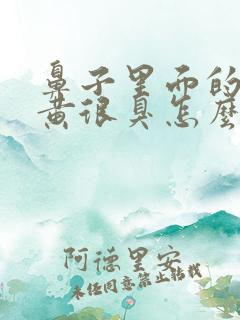 鼻子里面的
黄很臭怎么
阿德里安
未经同意禁止转载